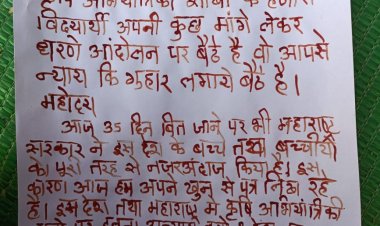 कृषि अभियांत्रिकी शाखा के हजारो
विद्यार्थी अपनी कुछ मांगे लेकर
धरणे आंदोलन पर बैठे है वो आपसे
न्याय कि गुहार लगाये बैठे है।
महोदय
आज 35 दिन बित जाने पर भी महाराष्ट्र
सरकार ने इस देश के बच्चे तथा बच्चीयों
को पूरी तरह से नजरअंदाज किया है। इस
कारण आज हम अपने खून से पत्र लिख रहे
है। इस देश तथा महाराष्ट्र मे कृषि अभियांत्रिकी